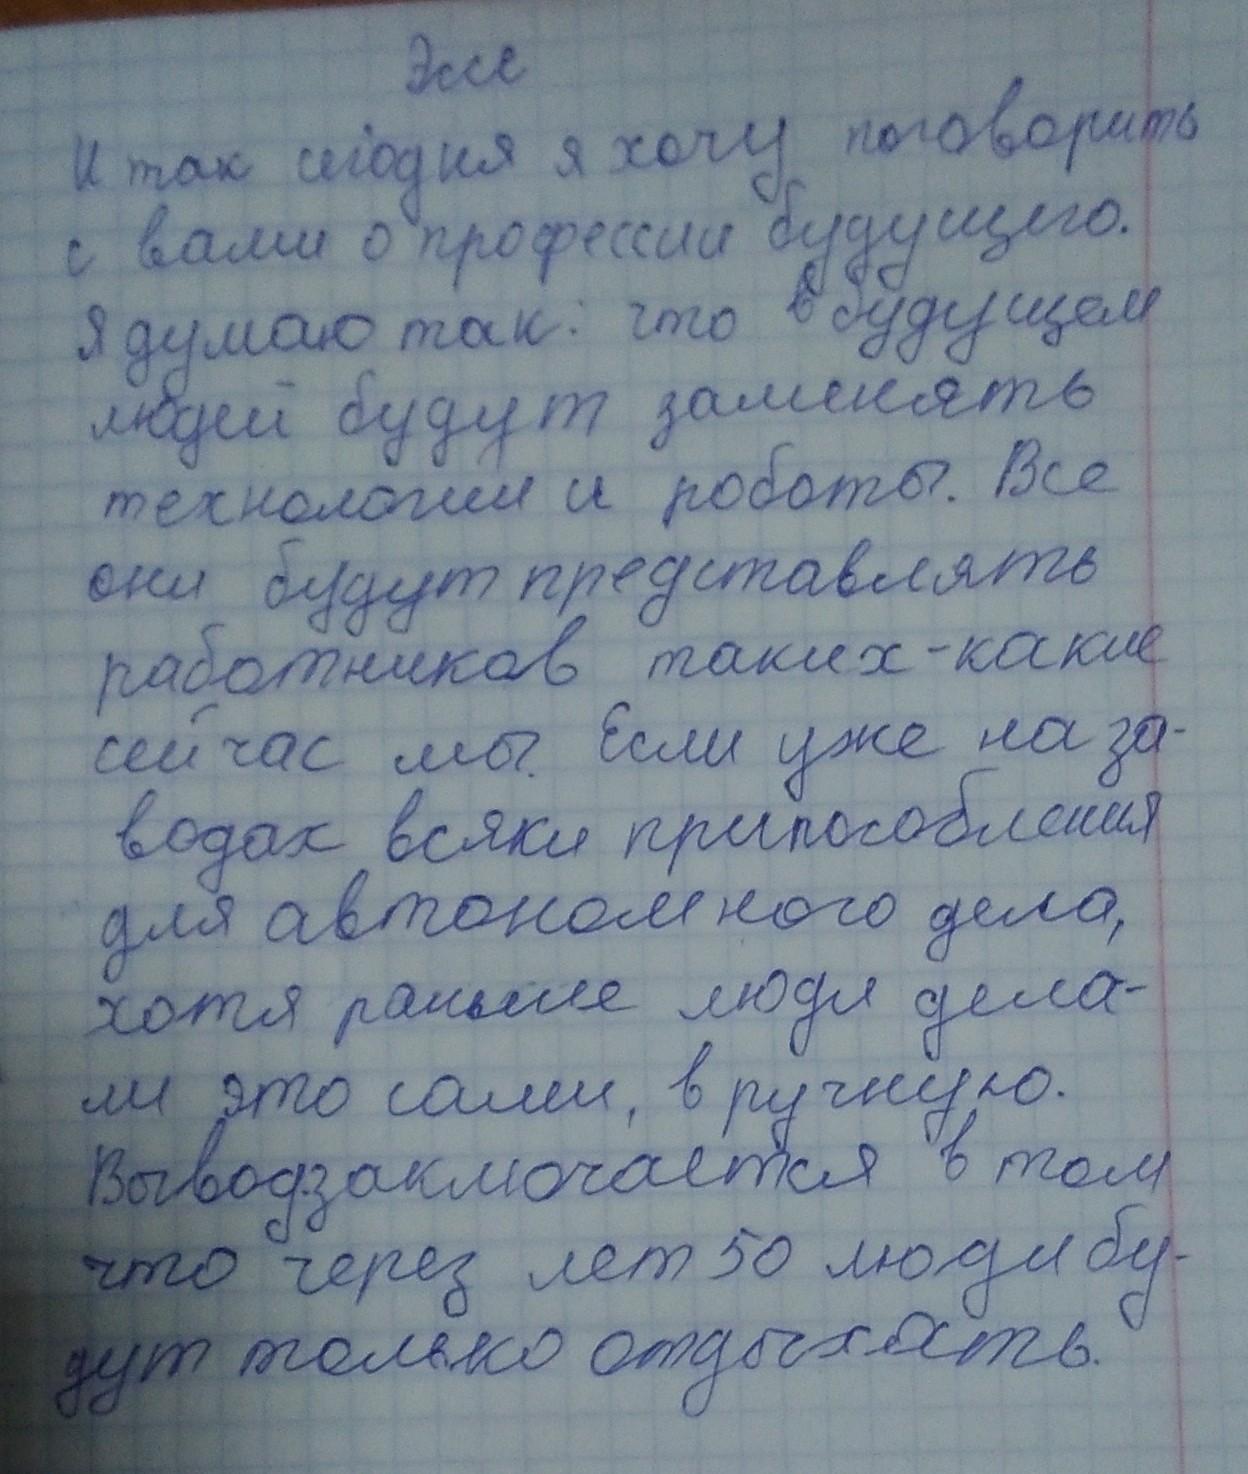 Эссе
И так сегодня я хочу поговорить
с вами о профессии будущего.
Я думаю так: что в будущем
людей будут заменять
технологии и роботы. Все
они будут представлять
работников таких-какие
сейчас мы. Если уже на за-
водах всяки припособления
для автономного дела,
хотя раньше люди дела-
ли это сами, в ручную.
Вывод заключается в том
что через лет 50 люди бу-
дут только отдыхать.